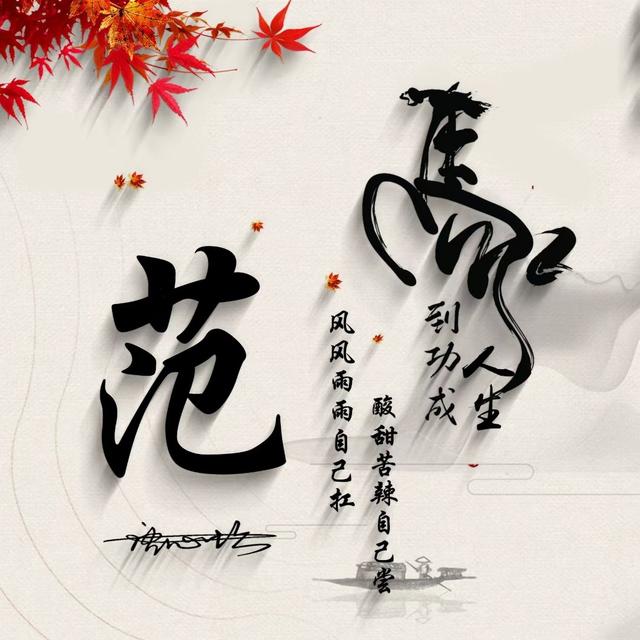 馬
到功成
人生
酸甜苦辣自己尝
风风雨雨自己扛
范